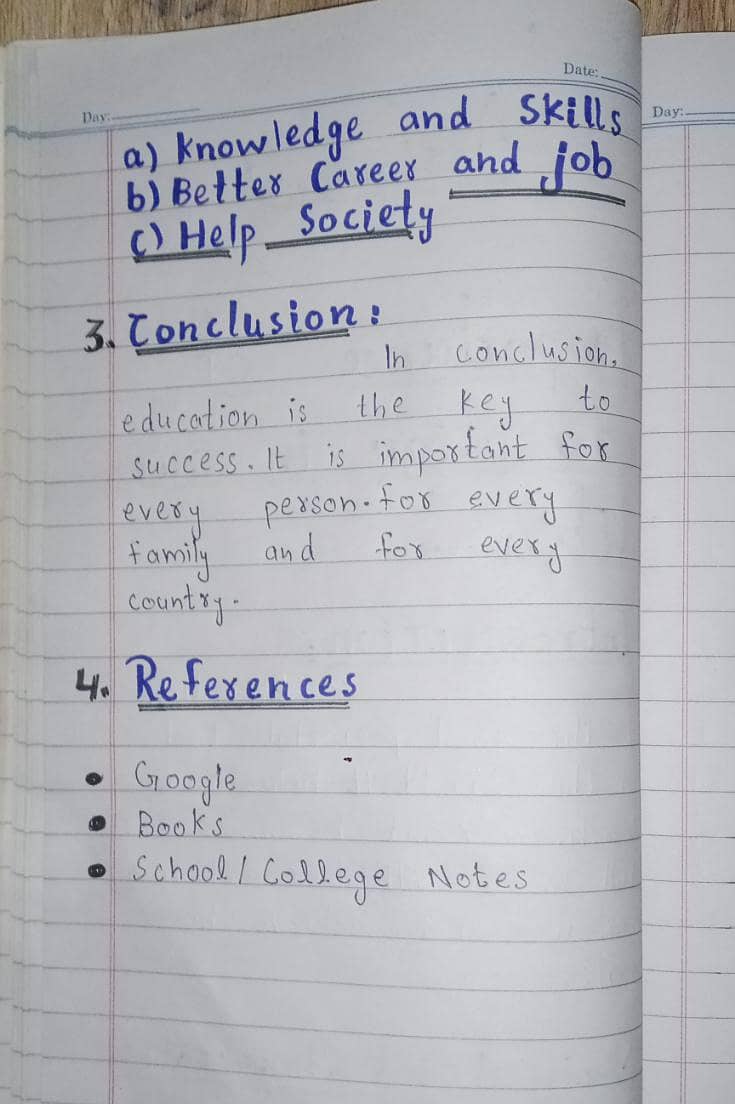 Date:
Day:
Day:
a) knowledge and Skills
b) Better Career and job
c) Help Society
3. Conclusion:
In conclusion,
education is the key to
success. It is important for
every person. for every
family and for every
country.
4. References
• Google
• Books
• School / College Notes